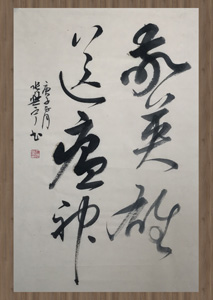 敬英雄
送瘟神
庚子正月
书